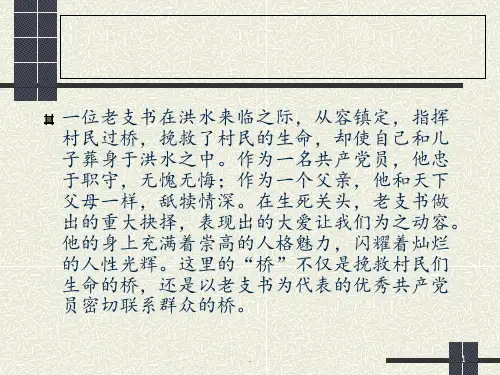 一位老支书在洪水来临之际，从容镇定，指挥
村民过桥，挽救了村民的生命，却使自己和儿
子葬身于洪水之中。作为一名共产党员，他忠
于职守，无愧无悔；作为一个父亲，他和天下
父母一样，舐犊情深。在生死关头，老支书做
出的重大抉择，表现出的大爱让我们为之动容。
他的身上充满着崇高的人格魅力，闪耀着灿烂
的人性光辉。这里的“桥”不仅是挽救村民们
生命的桥，还是以老支书为代表的优秀共产党
员密切联系群众的桥。
1